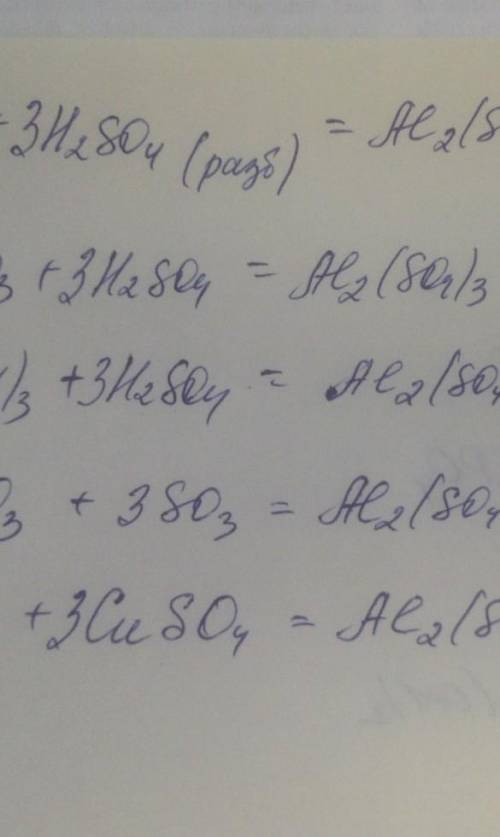 +3H₂SO₄ (разб) = Al₂(S
3 +3H₂SO₄ = Al₂(SO₄)₃
)₃ +3H₂SO₄ = Al₂(SO₄
O₃ + 3SO₃ = Al₂(SO₄
+3CuSO₄ = Al₂(S